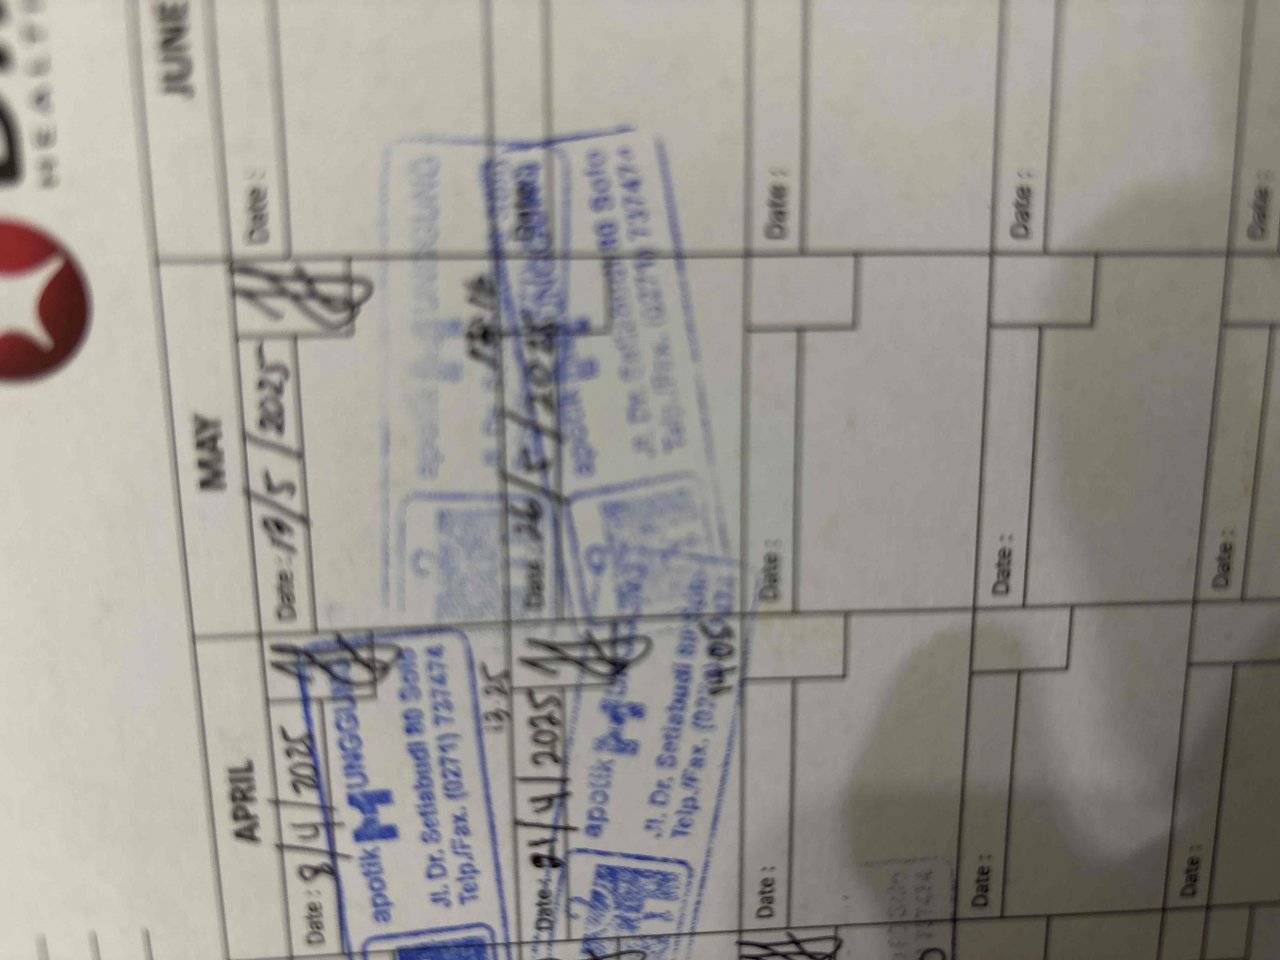 HEALTH
APRIL
MAY
JUNE
Date : 8/4/2025
Date : /5/2025
Date :
apotik MUNGGUNG
Jl. Dr. Setiabudi 80 Solo
Telp./Fax. (0271) 737474
13.25
apotik MUNGGUNG
Date : 21/4/2025
Date : 26/5/2025
apotik
Jl. Dr. Setiabudi 80
Telp./Fax. (0271)
14.05
apotik
Jl. Dr. Setiabudi 80 Solo
Telp./Fax. (0271) 737474
Date :
Date :
Date :
737474
Date :
Date :
Date :
Date :
Date :
Date :